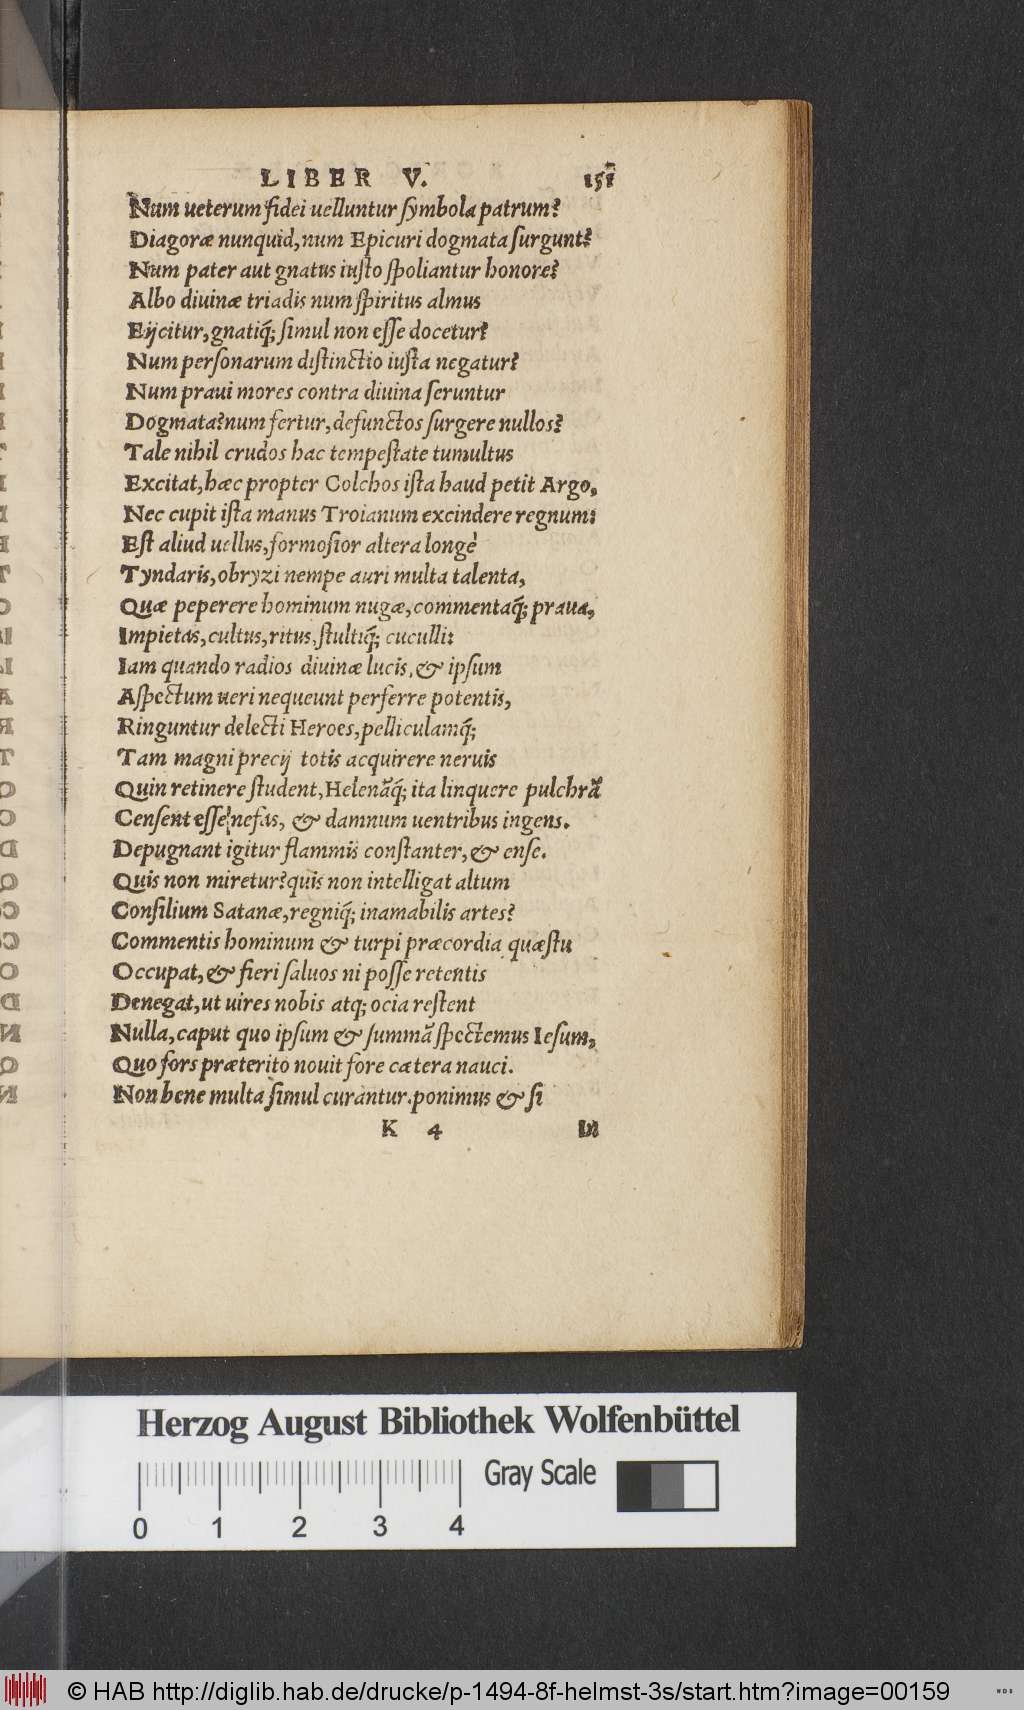 LIBER V. 151
Num ueterum fidei uelluntur ſymbola patrum?
Diagoræ nunquid, num Epicuri dogmata ſurgunt?
Num pater aut gnatus iuſto ſpoliantur honore?
Albo diuinæ triadis num ſpiritus almus
Eijcitur, gnatiq́; ſimul non eſſe docetur?
Num perſonarum diſtinctio iuſta negatur?
Num praui mores contra diuina ſeruntur
Dogmata? num fertur, defunctos ſurgere nullos?
Tale nihil crudos hac tempeſtate tumultus
Excitat, hæc propter Colchos iſta haud petit Argo,
Nec cupit iſta manus Troianum excindere regnum:
Eſt aliud uellus, formoſior altera longè
Tyndaris, obryzi nempe auri multa talenta,
Quæ peperere hominum nugæ, commentaq́; praua,
Impietas, cultus, ritus, ſtultiq́; cuculli:
Iam quando radios diuinæ lucis, & ipſum
Aſpectum ueri nequeunt perferre potentis,
Ringuntur delecti Heroes, pelliculamq́;
Tam magni precij totis acquirere neruis
Quin retinere ſtudent, Helenãq́; ita linquere pulchrã
Cenſent eſſe nefas, & damnum uentribus ingens.
Depugnant igitur flammis conſtanter, & enſe.
Quis non miretur? quis non intelligat altum
Conſilium Satanæ, regniq́; inamabilis artes?
Commentis hominum & turpi præcordia quæſtu
Occupat, & fieri ſaluos ni poſſe retentis
Denegat, ut uires nobis atq; ocia reſtent
Nulla, caput quo ipſum & ſummã ſpectemus Ieſum,
Quo fors præterito nouit fore cætera nauci.
Non bene multa ſimul curantur. ponimus & ſi
K 4 In
Herzog August Bibliothek Wolfenbüttel
Gray Scale
0 1 2 3 4
© HAB http://diglib.hab.de/drucke/p-1494-8f-helmst-3s/start.htm?image=00159